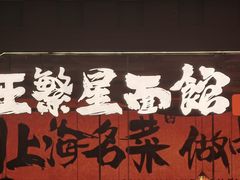 王繁星面館
上海名菜 做